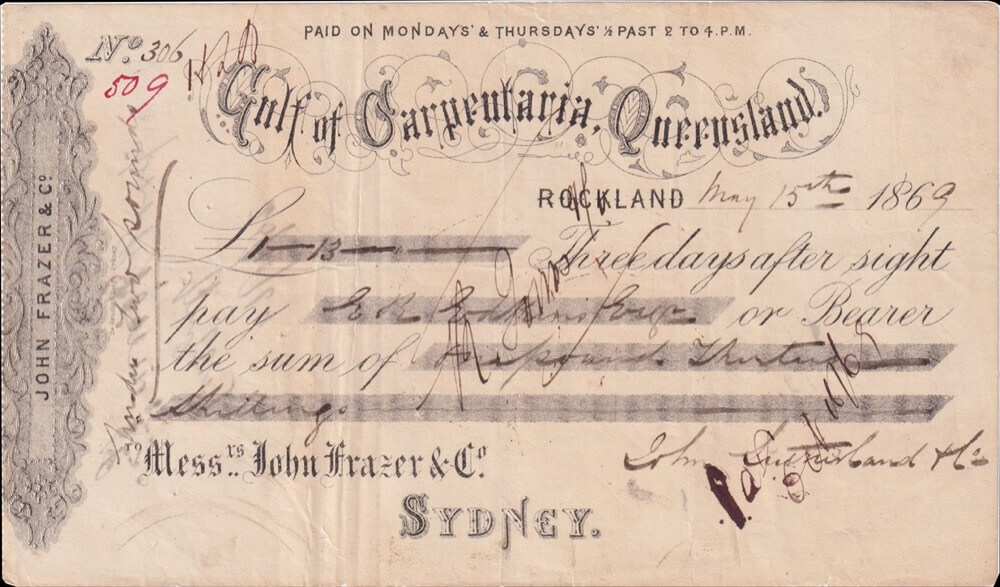 PAID ON MONDAYS' & THURSDAYS' ½ PAST 2 TO 4.P.M.
No. 306
509
Gulf of Carpentaria, Queensland.
ROCKLAND May 15th 1869
£1-13-
Three days after sight
pay E R Edkins Esqr or Bearer
the sum of One pound Thirteen
Shillings
To Messrs. John Frazer & Co.
John Sutherland & Co
SYDNEY.
JOHN FRAZER & Co.